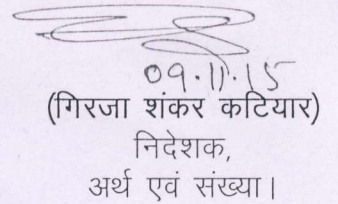 09.11.15
(गिरजा शंकर कटियार)
निदेशक,
अर्थ एवं संख्या।